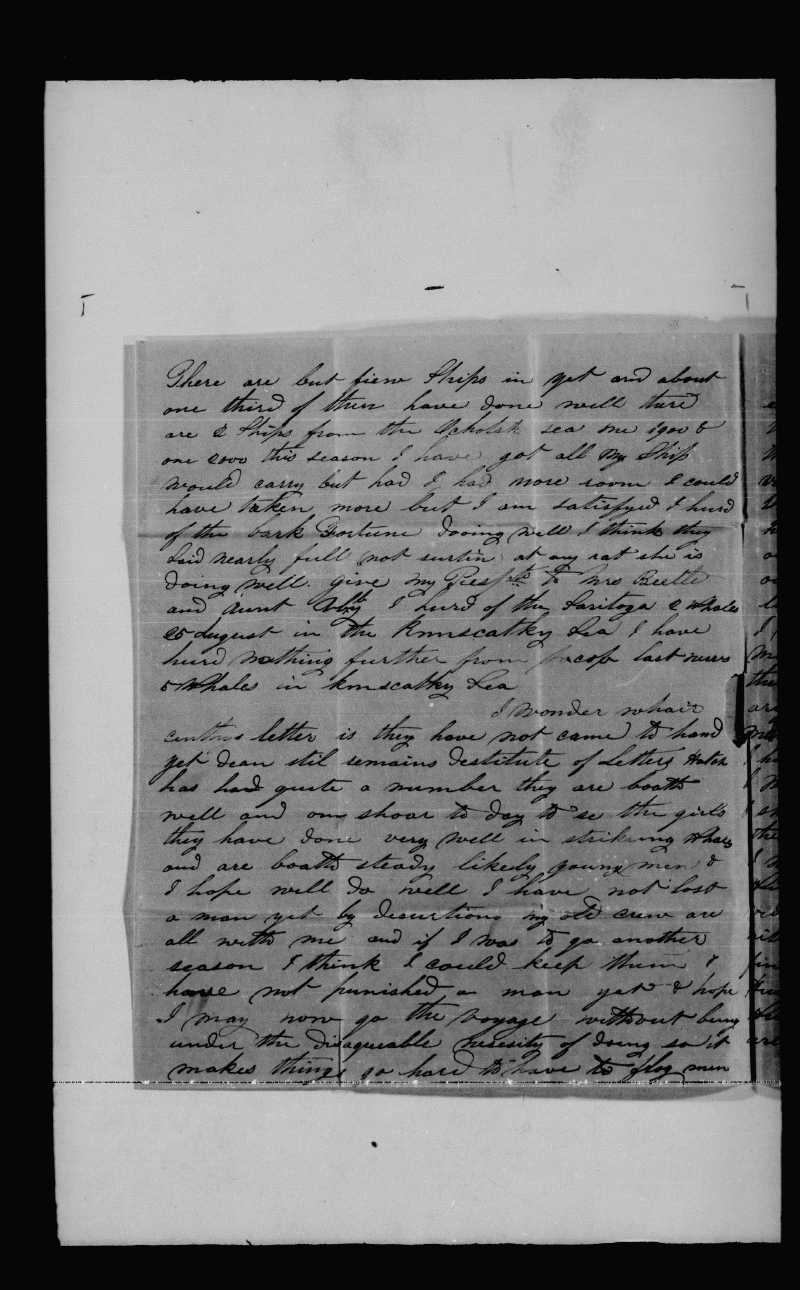 There are but fiew Ships in yet and about
one third of them have done well there
are 2 Ships from the Ocholsk sea one 1900 &
one 2000 this season I have got all my Ship
would carry but had I had more room I could
have taken more but I am satisfyed I hurd
of the bark Fortune dooing well I think they
Said nearly full not surtin at any rat she is
doing well. give my Respts to Mrs Beetle
and Aunt I hurd of the Saritoga 2 Whales
25 August in the Kmscatky Sea I have
hurd nothing further from Jacob last news
5 Whales in kmscatky Sea
I wonder whair
letter is they have not came to hand
yet dean stil remains destitute of Letters Hatch
has had quite a number they are boath
well and on shoar to day to se the girls
they have done very well in strikeing Whales
and are boath steady likely young men &
I hope will do well I have not lost
a man yet by desertions my old crew are
all with me and if I was to go another
season I think I could keep them &
have not punished a man yet & hope
I may now go the voyage without being
under the disagueable necisity of doing so it
makes things go hard to have to flog men